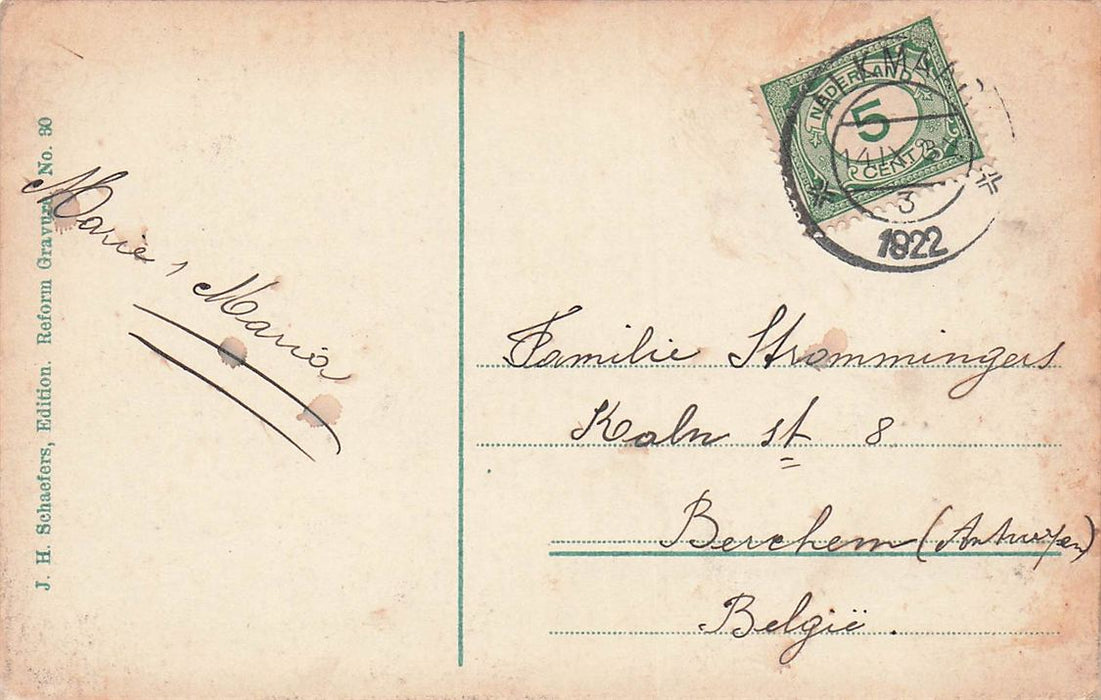 J. H. Schaefers, Edition. Reform Gravure No. 30
Marie, Maria
NEDERLAND
5
CENT
3
1922
Familie Strommingers
Kaln st 8
Berchem (Antwerpen)
België.